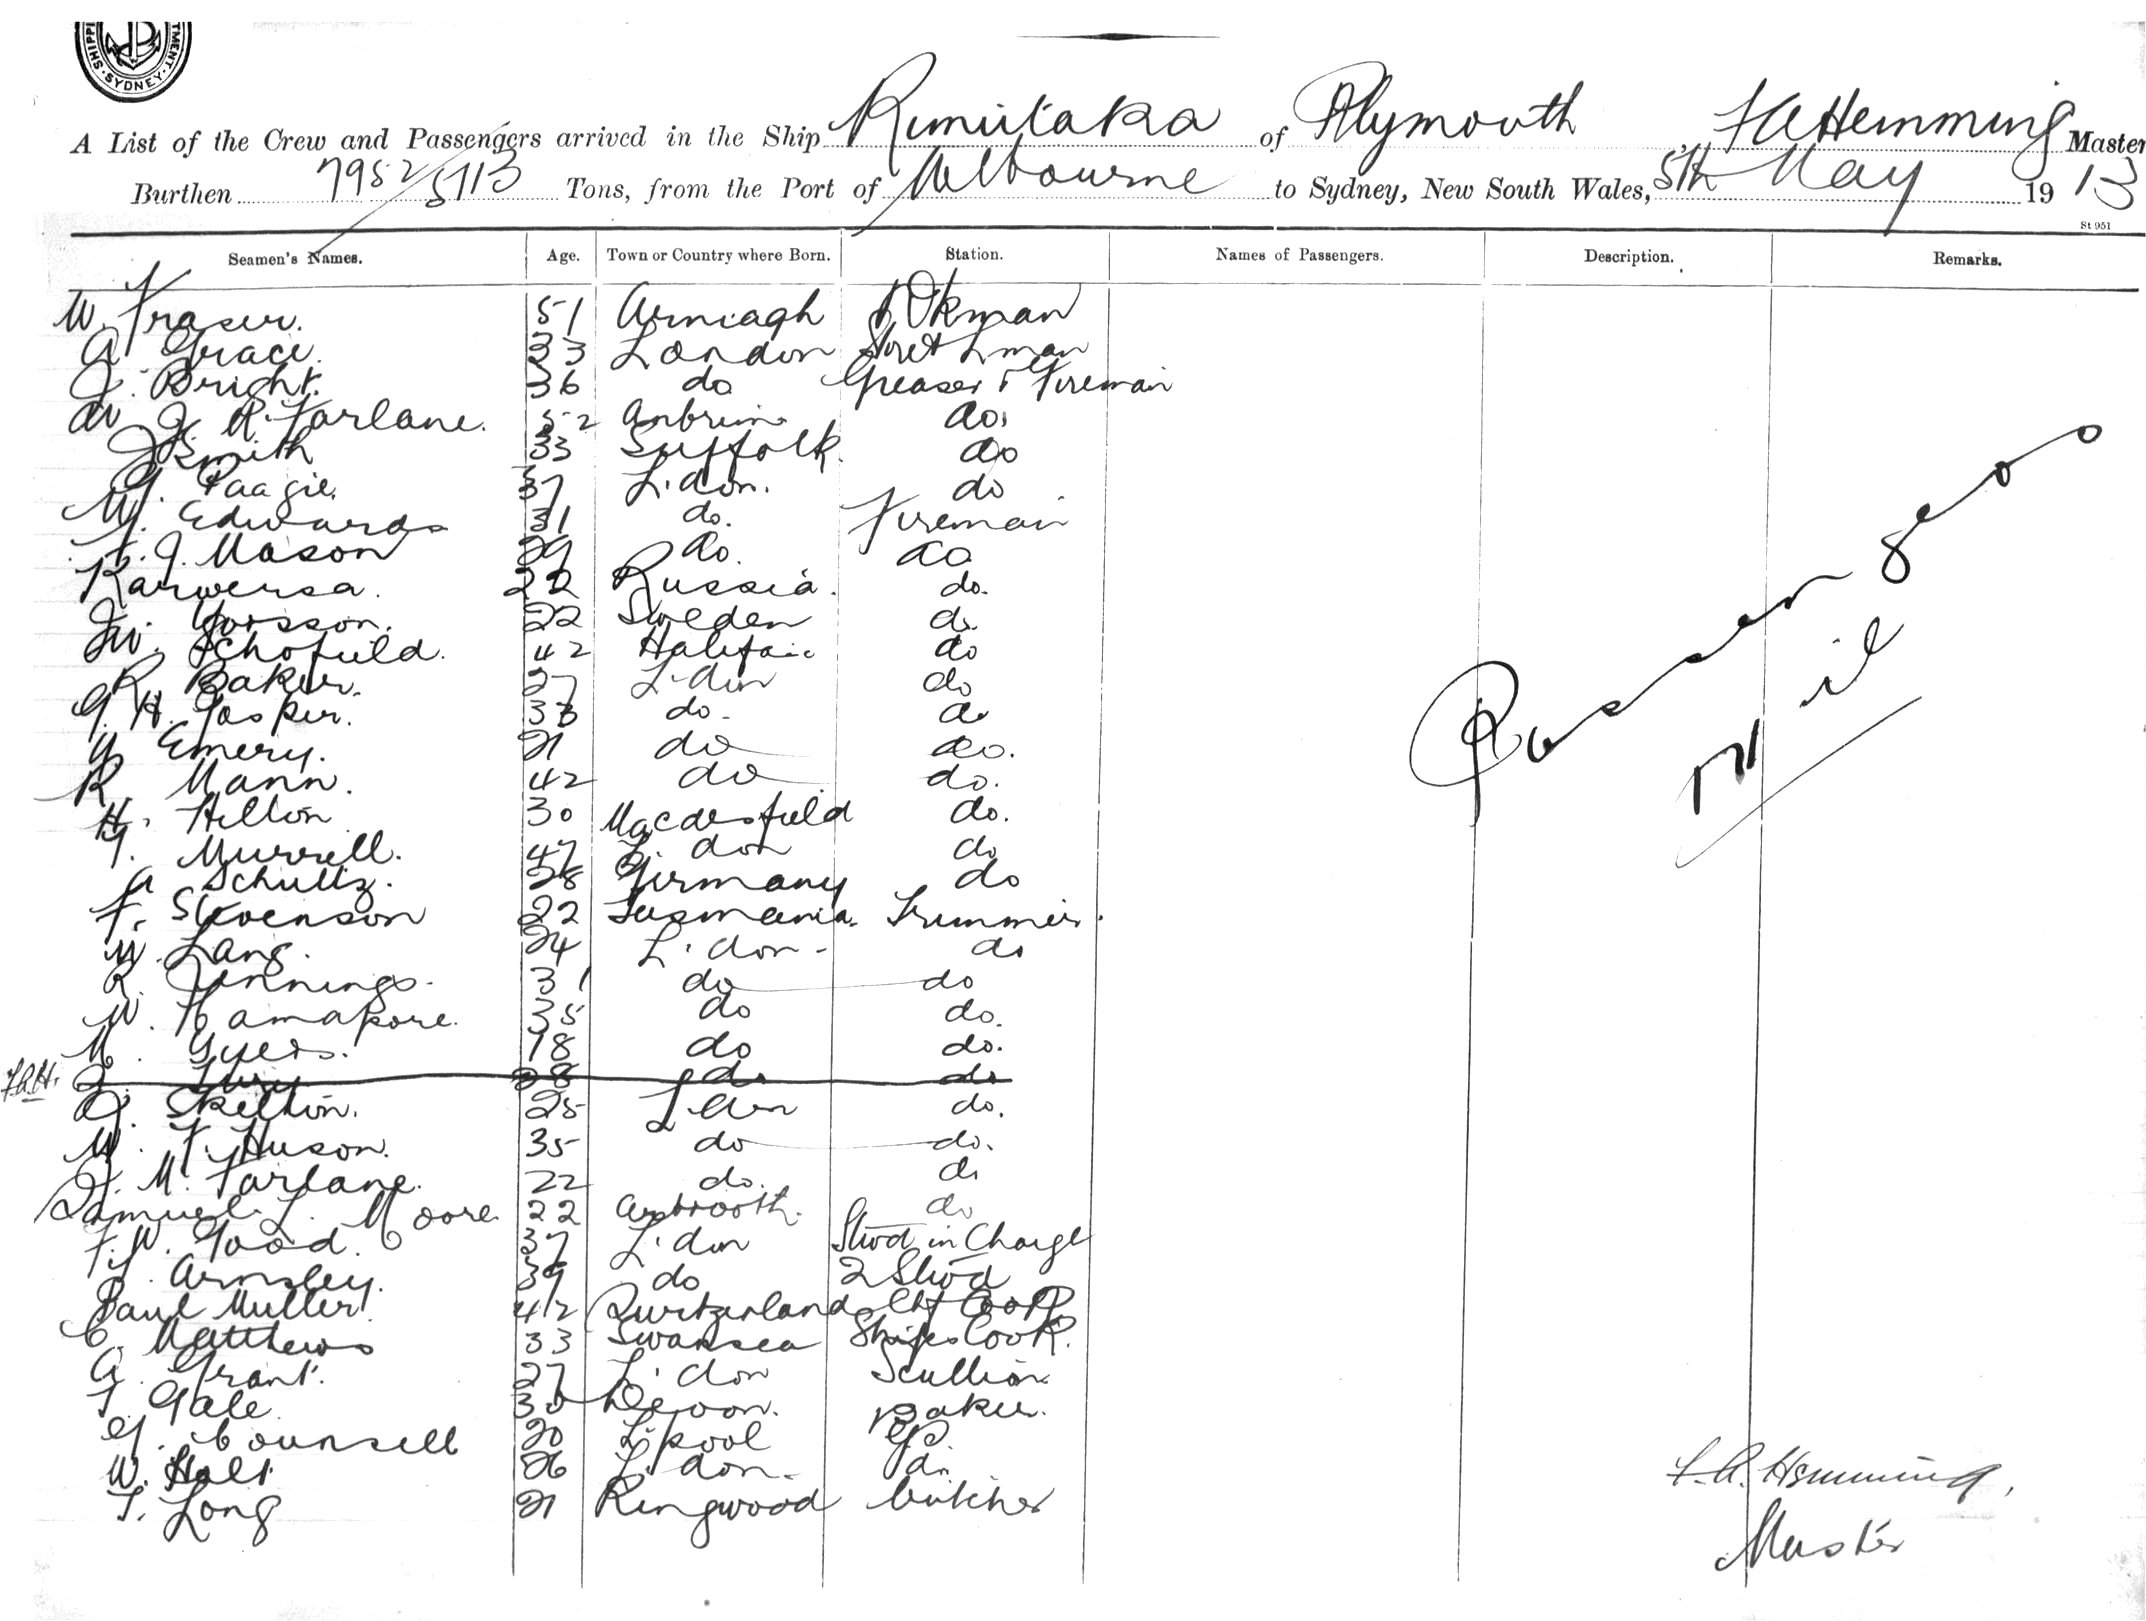 SHIPPI TMENT · SYDNEY ·
A List of the Crew and Passengers arrived in the Ship Rimutaka of Plymouth, F A Hemming Master
Burthen 7952/5713 Tons, from the Port of Melbourne to Sydney, New South Wales, 5th May 1913
St 951
Seamen's Names. Age. Town or Country where Born. Station. Names of Passengers. Description. Remarks.
W. Fraser. 51 Armagh
A Grace. 33 London
J. Bright. 36 do Greaser & Fireman
52 do.
J Smith 33 Suffolk. do
37 L'don. do
W. Edwards 31 do. Fireman
Mason 29 do. do
Karwersa. 22 Russia. do.
22 Sweden do.
Schofield. 42 Halifax do
R. Baker. 27 L'don do
G. H. Gosper. 33 do. do
Emery. 21 do do.
R Mann. 42 do do.
H. Hilton 30 do.
Murrell. 47 L'don do
A Schultz. 28 Germany do
F. Stevenson 22 Tasmania. Trimmer.
W. Lang. 24 L'don. do
R. Jennings. 31 do do
W. 35 do do.
M. 18 do do.
F.A.H. 28 do do
Skelton. 25 L'don do.
W. F. Huson. 35 do do.
J. Mc Farlane. 22 do. do
Samuel L. Moore 22 Arbrooth. do
F. W. Good. 37 L'don Stwd in Charge
Arnsley. 39 do 2 Stwd
Paul Muller. 42 Switzerland Chf Cook
C. Matthews 33 Swansea Ships Cook.
A Grant. 27 L'don Scullion
T Gale. 30 Devon. Baker.
G. Counsell 20 L'pool
W. Holt 26 L'don. do.
T. Long 21 Ringwood butcher
Passengers
Nil
F. A. Hemming,
Master